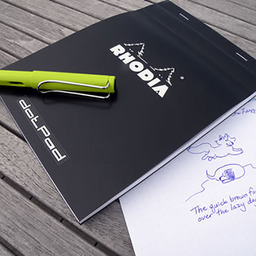 RHODIA
dotPad
The quick brown fo
over the lazy do